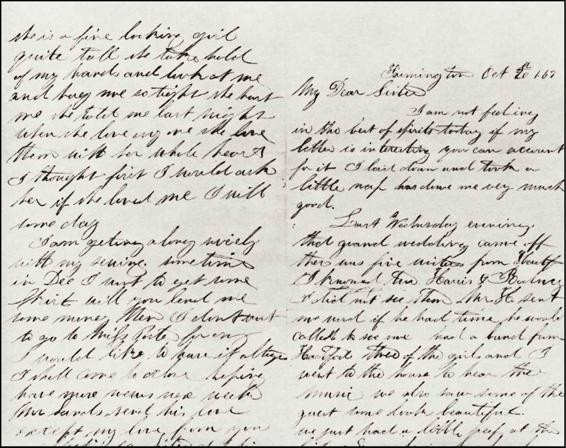 Farmington Oct 20th 1867
My Dear Sister
I am not feeling
in the best of spirits today if my
letter is interesting you can account
for it I laid down and took a
little nap has done me very much
good.
Last Wednesday evening
that grand wedding came off
there was five from
I knowed two &
I did not see them Mr H sent
me word if he had time he would
called to see me had a band from
three of the girls and I
went to the house to hear the
music we also saw some of the
guest some look beautiful
we just had a little peep at the
she is a fine looking girl
quite tall she take hold
of my hands and look at me
and hug me so tight she hurt
me she told me last night
when she love any one she love
them with her whole heart
I thought first I would ask
her if she loved me I will
some day
I am geting along nicely
with my sewing. sometime
in Dec I want to get some
will you lend me
some money then I dont want
to go to Miss Porter for any
I would like to have if
I shall come before
have more news next week
sends his love
except my love from you